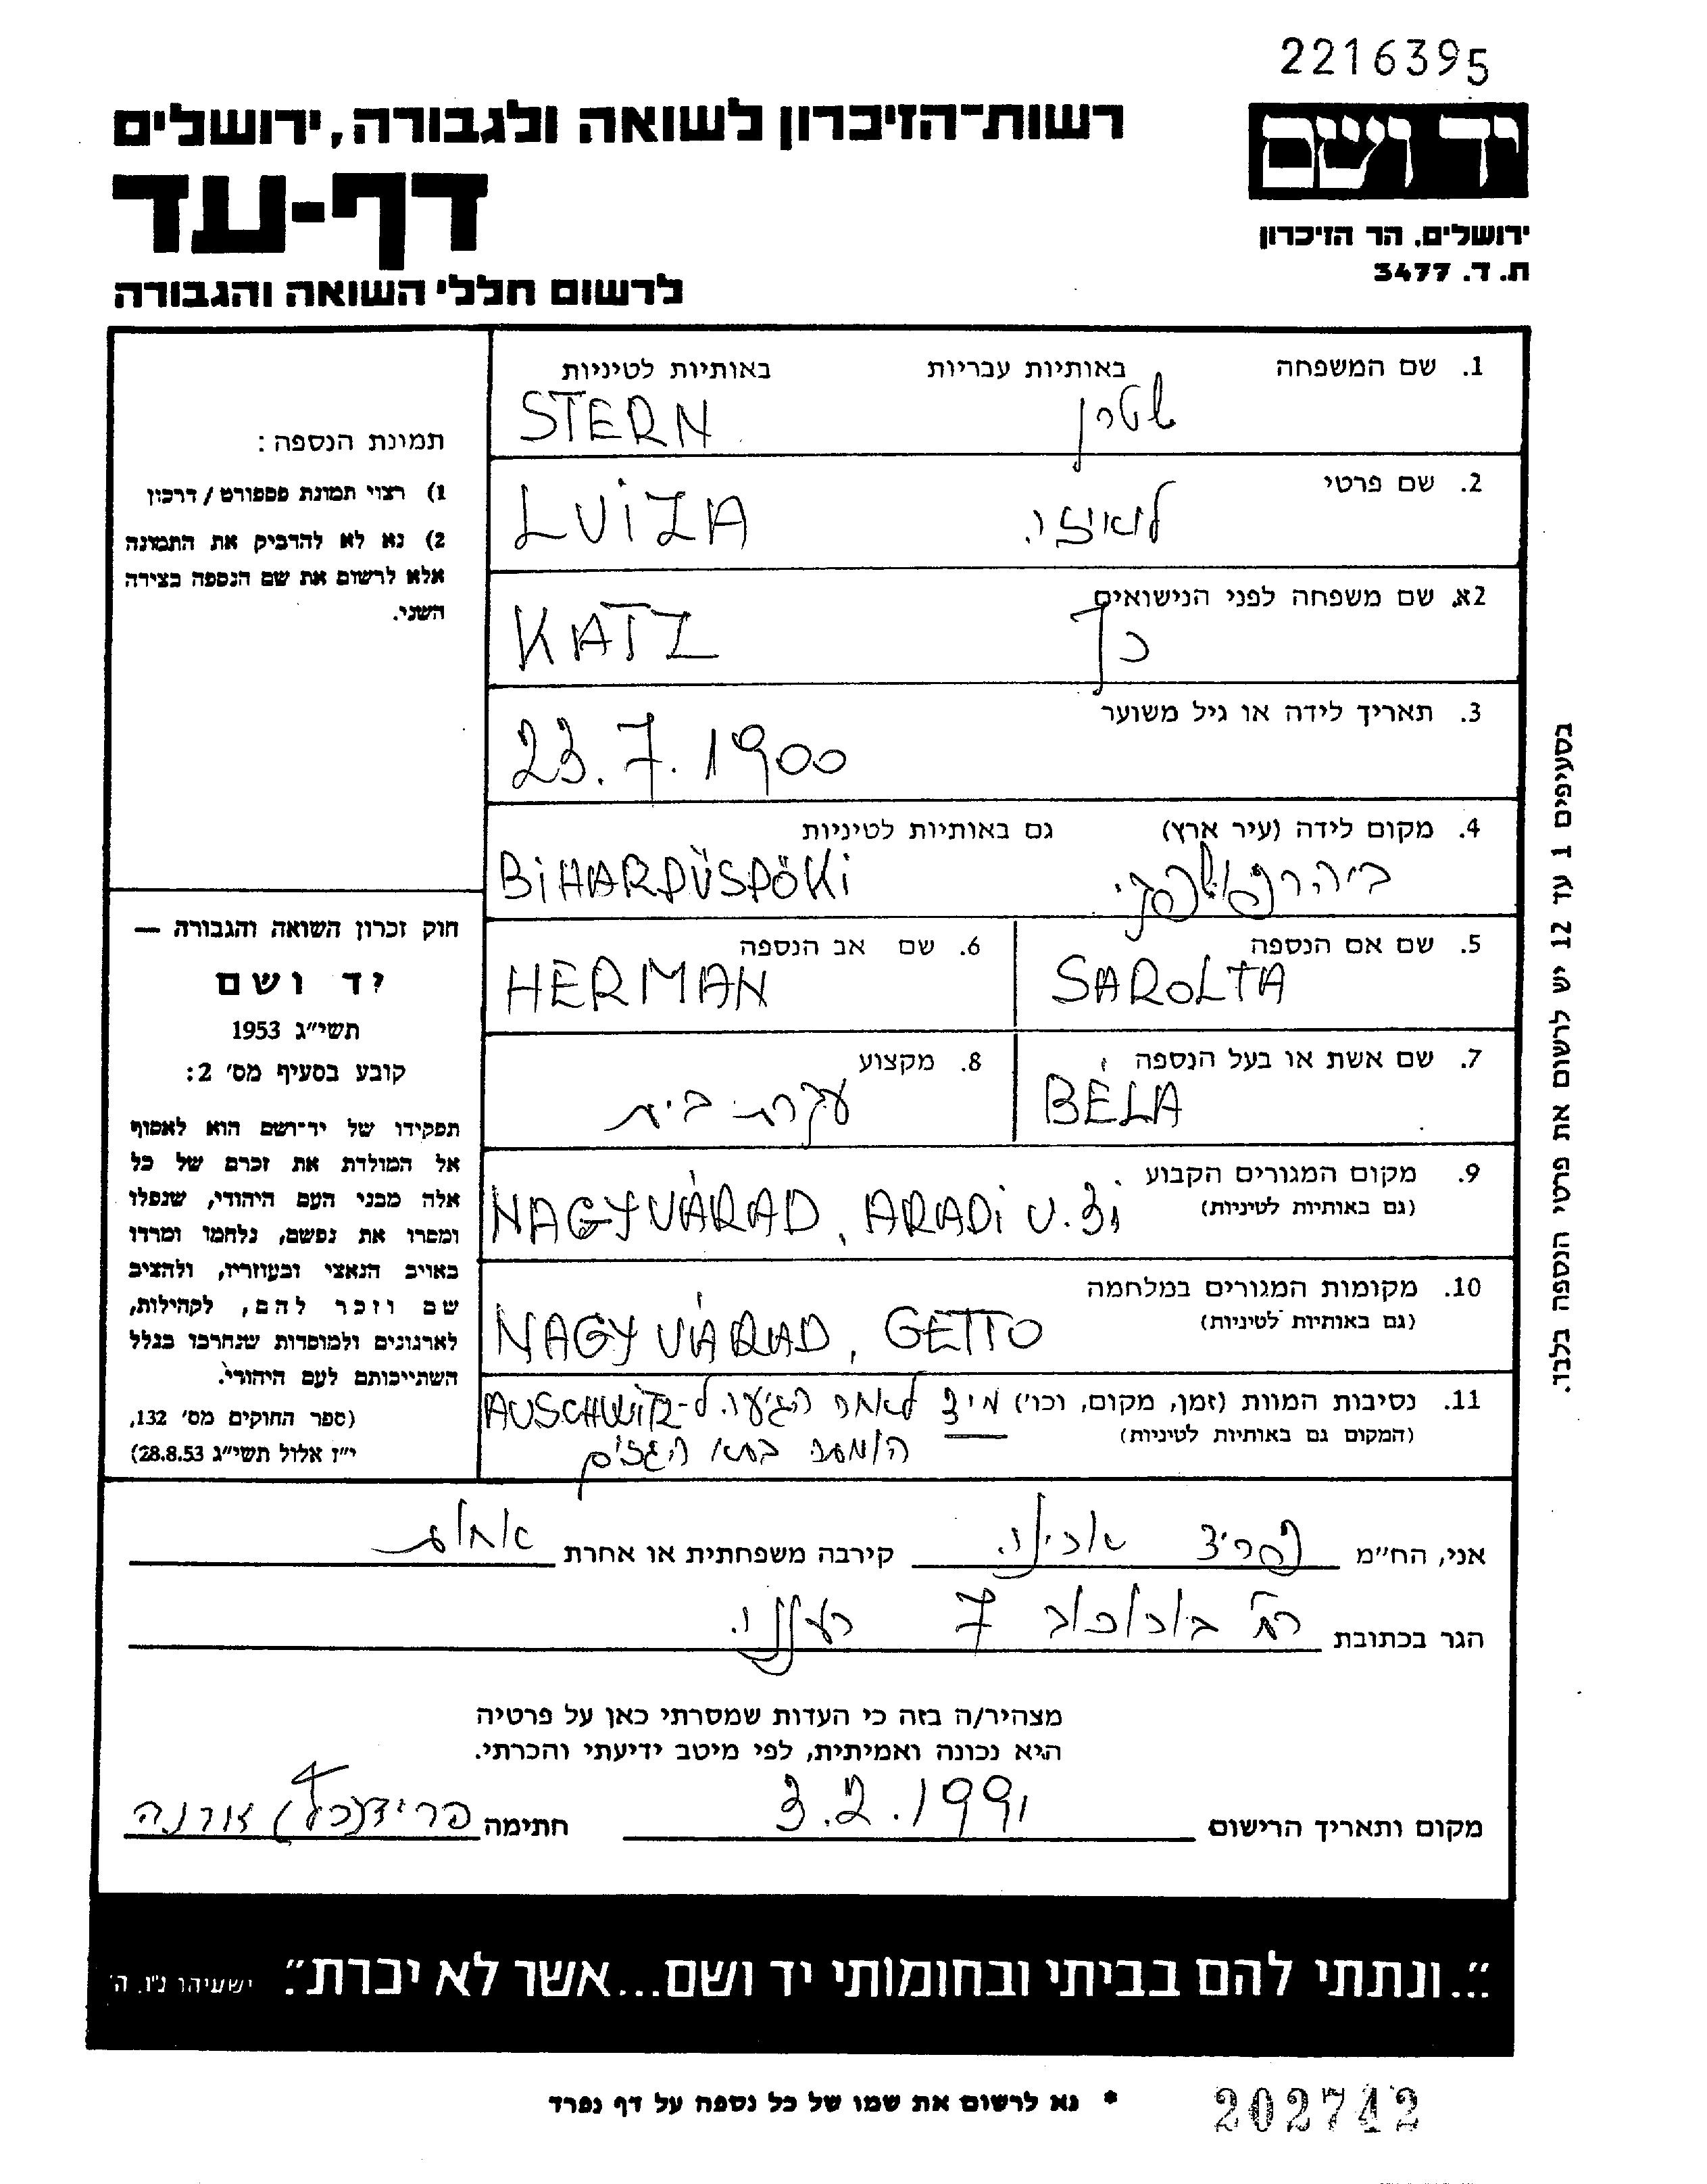 2216395
רשות־הזיכרון לשואה ולגבורה, ירושלים
יד ושם
דף-עד
ירושלים, הר הזיכרון
ת. ד. 3477
לרשום חללי השואה והגבורה
1. שם המשפחה באותיות עבריות באותיות לטיניות
שטרן STERN
2. שם פרטי
לואיזה LUIZA
2א. שם משפחה לפני הנישואים
כץ KATZ
3. תאריך לידה או גיל משוער
23.7.1900
4. מקום לידה (עיר ארץ) גם באותיות לטיניות
ביהרפושפקי BIHARPÜSPÖKI
5. שם אם הנספה 6. שם אב הנספה
SAROLTA HERMAN
7. שם אשת או בעל הנספה 8. מקצוע
BÉLA עקרת בית
9. מקום המגורים הקבוע
(גם באותיות לטיניות)
NAGYVÁRAD, ARADI U. 31
10. מקומות המגורים במלחמה
(גם באותיות לטיניות)
NAGYVÁRAD, GETTO
11. נסיבות המוות (זמן, מקום, וכו') מיד לאחר הגיעה ל-AUSCHWITZ
(המקום גם באותיות לטיניות)
הומתה בתא הגזים
תמונת הנספה:
1) רצוי תמונת פספורט / דרכון
2) נא לא להדביק את התמונה
אלא לרשום את שם הנספה בצידה
השני.
חוק זכרון השואה והגבורה —
יד ושם
תשי״ג 1953
קובע בסעיף מס' 2:
תפקידו של יד־ושם הוא לאסוף
אל המולדת את זכרם של כל
אלה מבני העם היהודי, שנפלו
ומסרו את נפשם, נלחמו ומרדו
באויב הנאצי ובעוזריו, ולהציב
שם וזכר להם, לקהילות,
לארגונים ולמוסדות שנחרבו בגלל
השתייכותם לעם היהודי.
(ספר החוקים מס' 132,
י״ז אלול תשי״ג 28.8.53)
בסעיפים 1 עד 12 יש לרשום את פרטי הנספה בלבד.
אני, הח״מ פריד קירבה משפחתית או אחרת
הגר בכתובת רח' בורוכוב 7 רעננה
מצהיר/ה בזה כי העדות שמסרתי כאן על פרטיה
היא נכונה ואמיתית, לפי מיטב ידיעתי והכרתי.
מקום ותאריך הרישום 3.2.1991 חתימה פריד
״...ונתתי להם בביתי ובחומותי יד ושם...אשר לא יכרת״. ישעיהו נ״ו, ה'
* נא לרשום את שמו של כל נספה על דף נפרד
202742